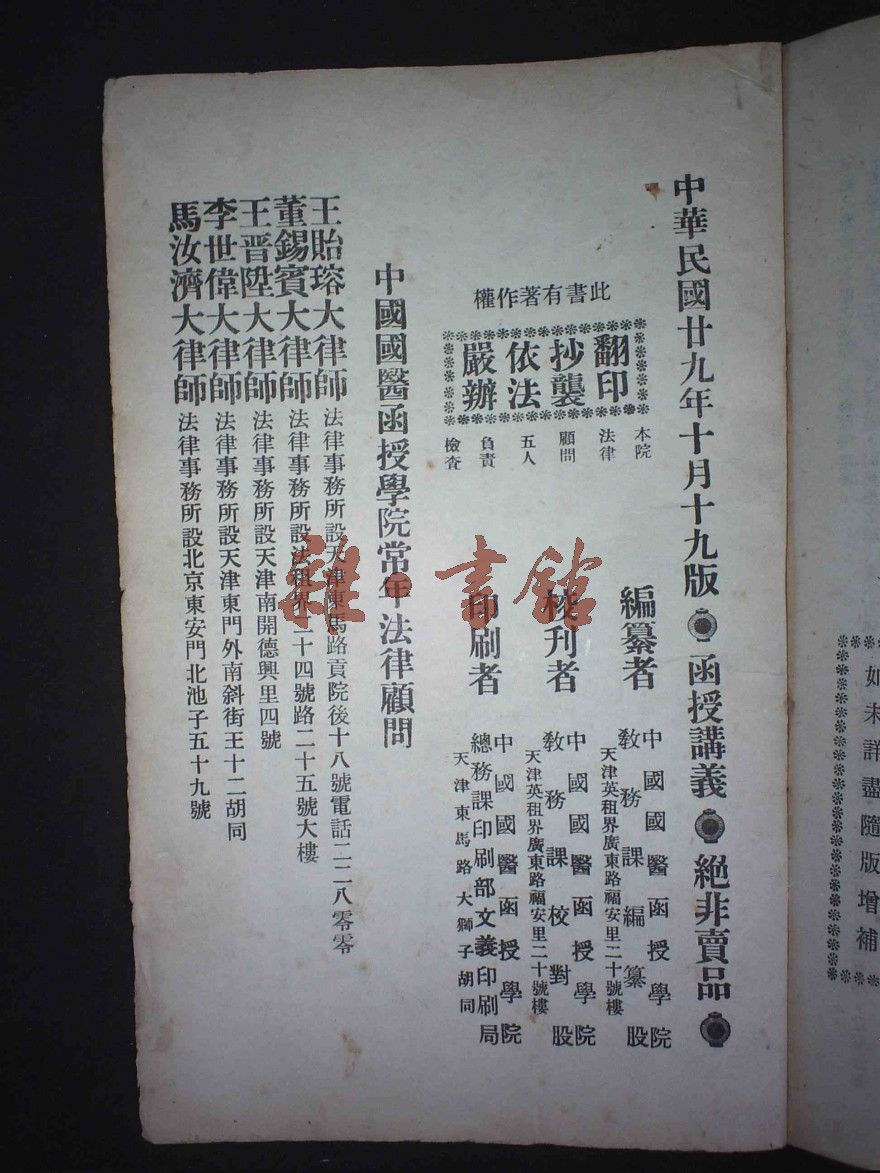 中華民國廿九年十月十九版 函授講義 絕非賣品
此書有著作權
翻印
抄襲
依法
嚴辦
本院
法律
顧問
五人
負責
檢查
編纂者
中國國醫函授學院
教務課編纂股
天津英租界廣東路福安里二十號樓
校刊者
中國國醫函授學院
教務課校對股
天津英租界廣東路福安里二十號樓
印刷者
中國國醫函授學院
總務課印刷部文義印刷局
天津東馬路大獅子胡同
中國國醫函授學院常年法律顧問
王貽瑢大律師 法律事務所設天津東馬路貢院後十八號電話二二八零零
董錫賓大律師 法律事務所設法租界二十四號路二十五號大樓
王晋陞大律師 法律事務所設天津南開德興里四號
李世偉大律師 法律事務所設天津東門外南斜街王十二胡同
馬汝濟大律師 法律事務所設北京東安門北池子五十九號
如未詳盡隨版增補
雜·書館